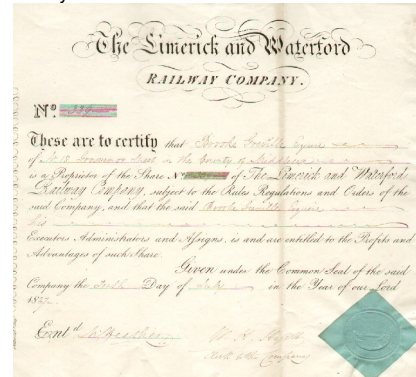 The Limerick and Waterford
RAILWAY COMPANY.
Nº
These are to certify that Brooke Esquire
of Nº 18 Grosvenor in the County of Middlesex
is a Proprietor of the Share Nº of The Limerick and Waterford
Railway Company, subject to the Rules Regulations and Orders of the
said Company; and that the said Brooke Esquire
his
Executors Administrators and Assigns, is and are entitled to the Profits and
Advantages of such Share.
Given under the Common Seal of the said
Company the Day of July in the Year of our Lord
1827.
Entd W. H.
Clerk to the Company